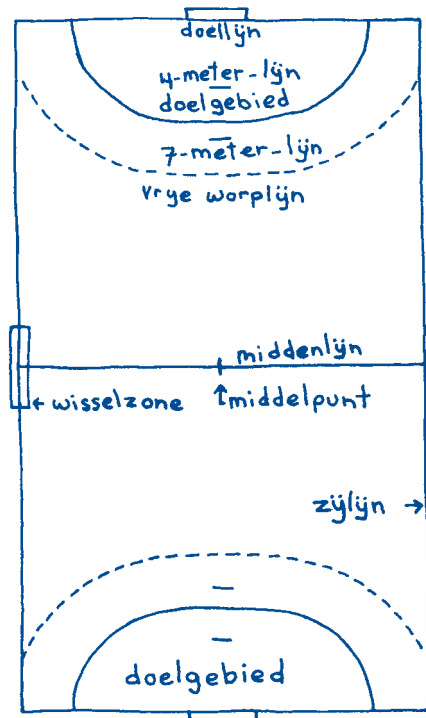 doellijn
4-meter-lijn
doelgebied
7-meter-lijn
vrye worplijn
middenlijn
← wisselzone
↑middelpunt
zijlijn →
doelgebied